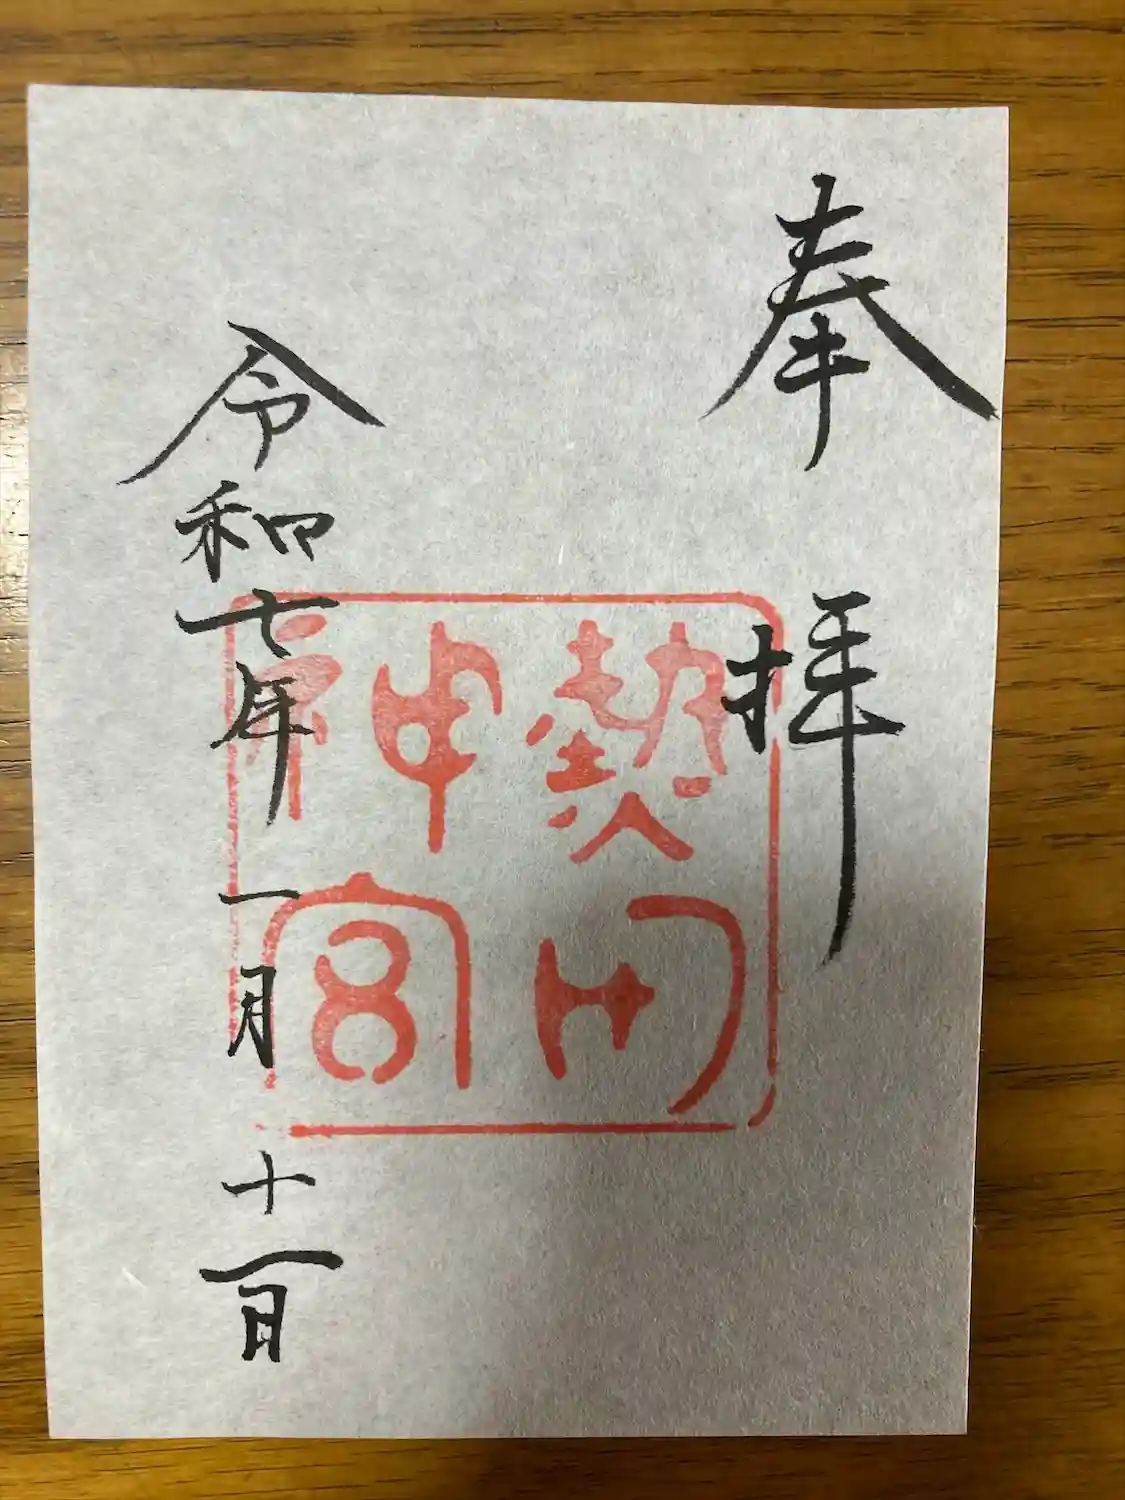 奉拝
熱田
神宮
令和七年一月十一日